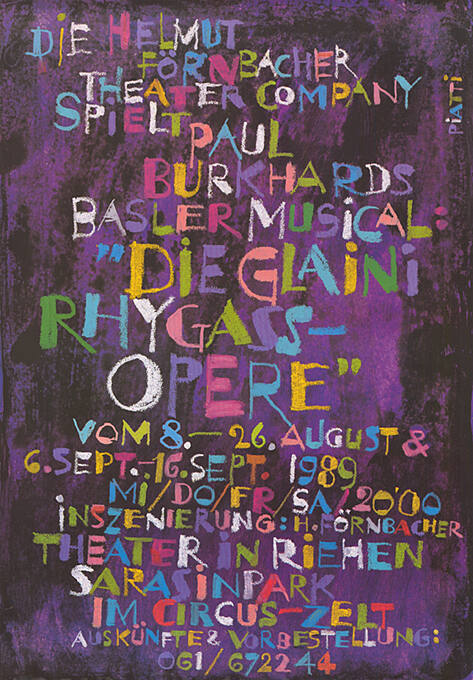 DIE HELMUT
FÖRNBACHER
THEATER COMPANY
SPIELT PAUL
BURKHARDS
BASLER MUSICAL:
"DIE GLAINI
RHYGASS-
OPERE"
VOM 8.– 26. AUGUST &
6. SEPT.–16. SEPT. 1989
MI/DO/FR/SA/20'00
INSZENIERUNG: H. FÖRNBACHER
THEATER IN RIEHEN
SARASINPARK
IM CIRCUS-ZELT
AUSKÜNFTE & VORBESTELLUNG:
061/672244
PiATTi